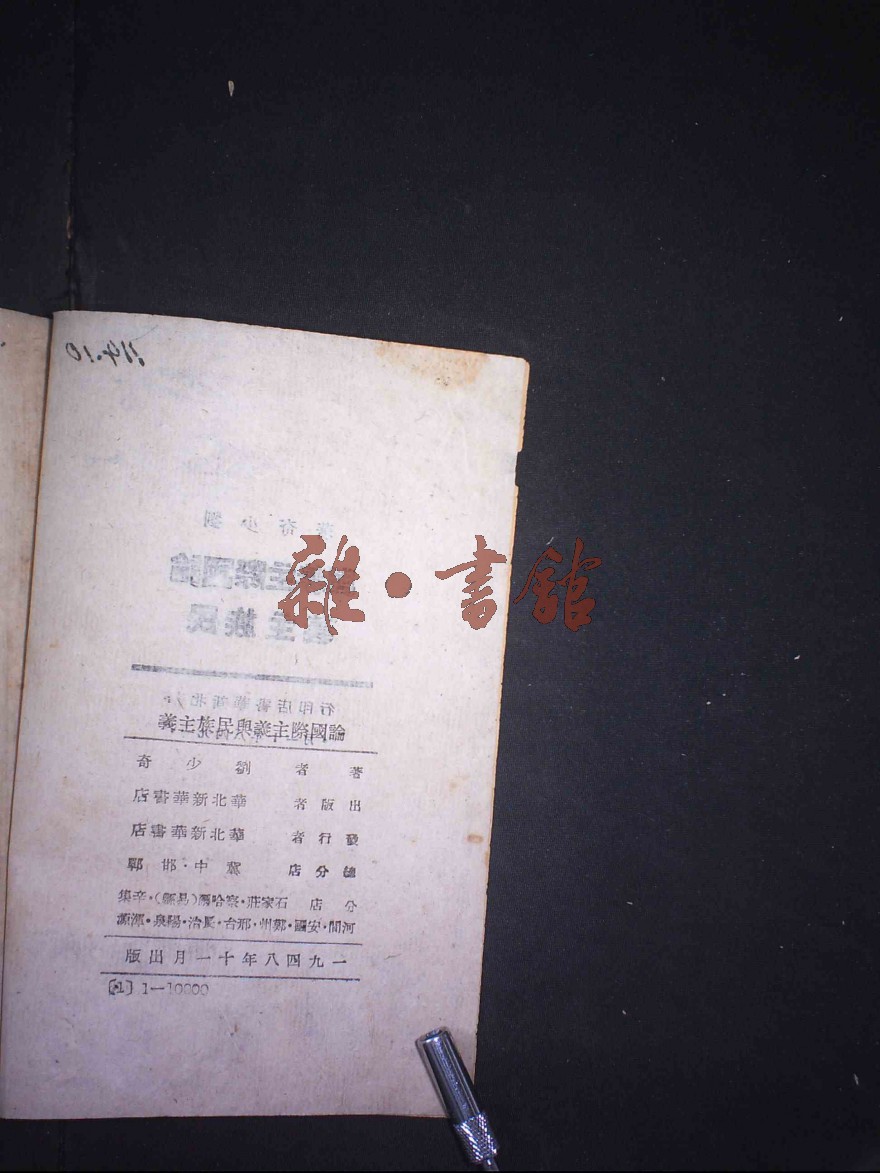 劉少奇著
民族主
雜·書館
華北新華書店印行
論國際主義與民族主義
著者 劉少奇
出版者 華北新華書店
發行者 華北新華書店
總分店 冀中·邯鄲
分店 石家莊·察哈爾(易縣)·辛集
河間·安國·鄭州·邢台·長治·陽泉·渾源
一九四八年十一月出版
[1] 1—10000